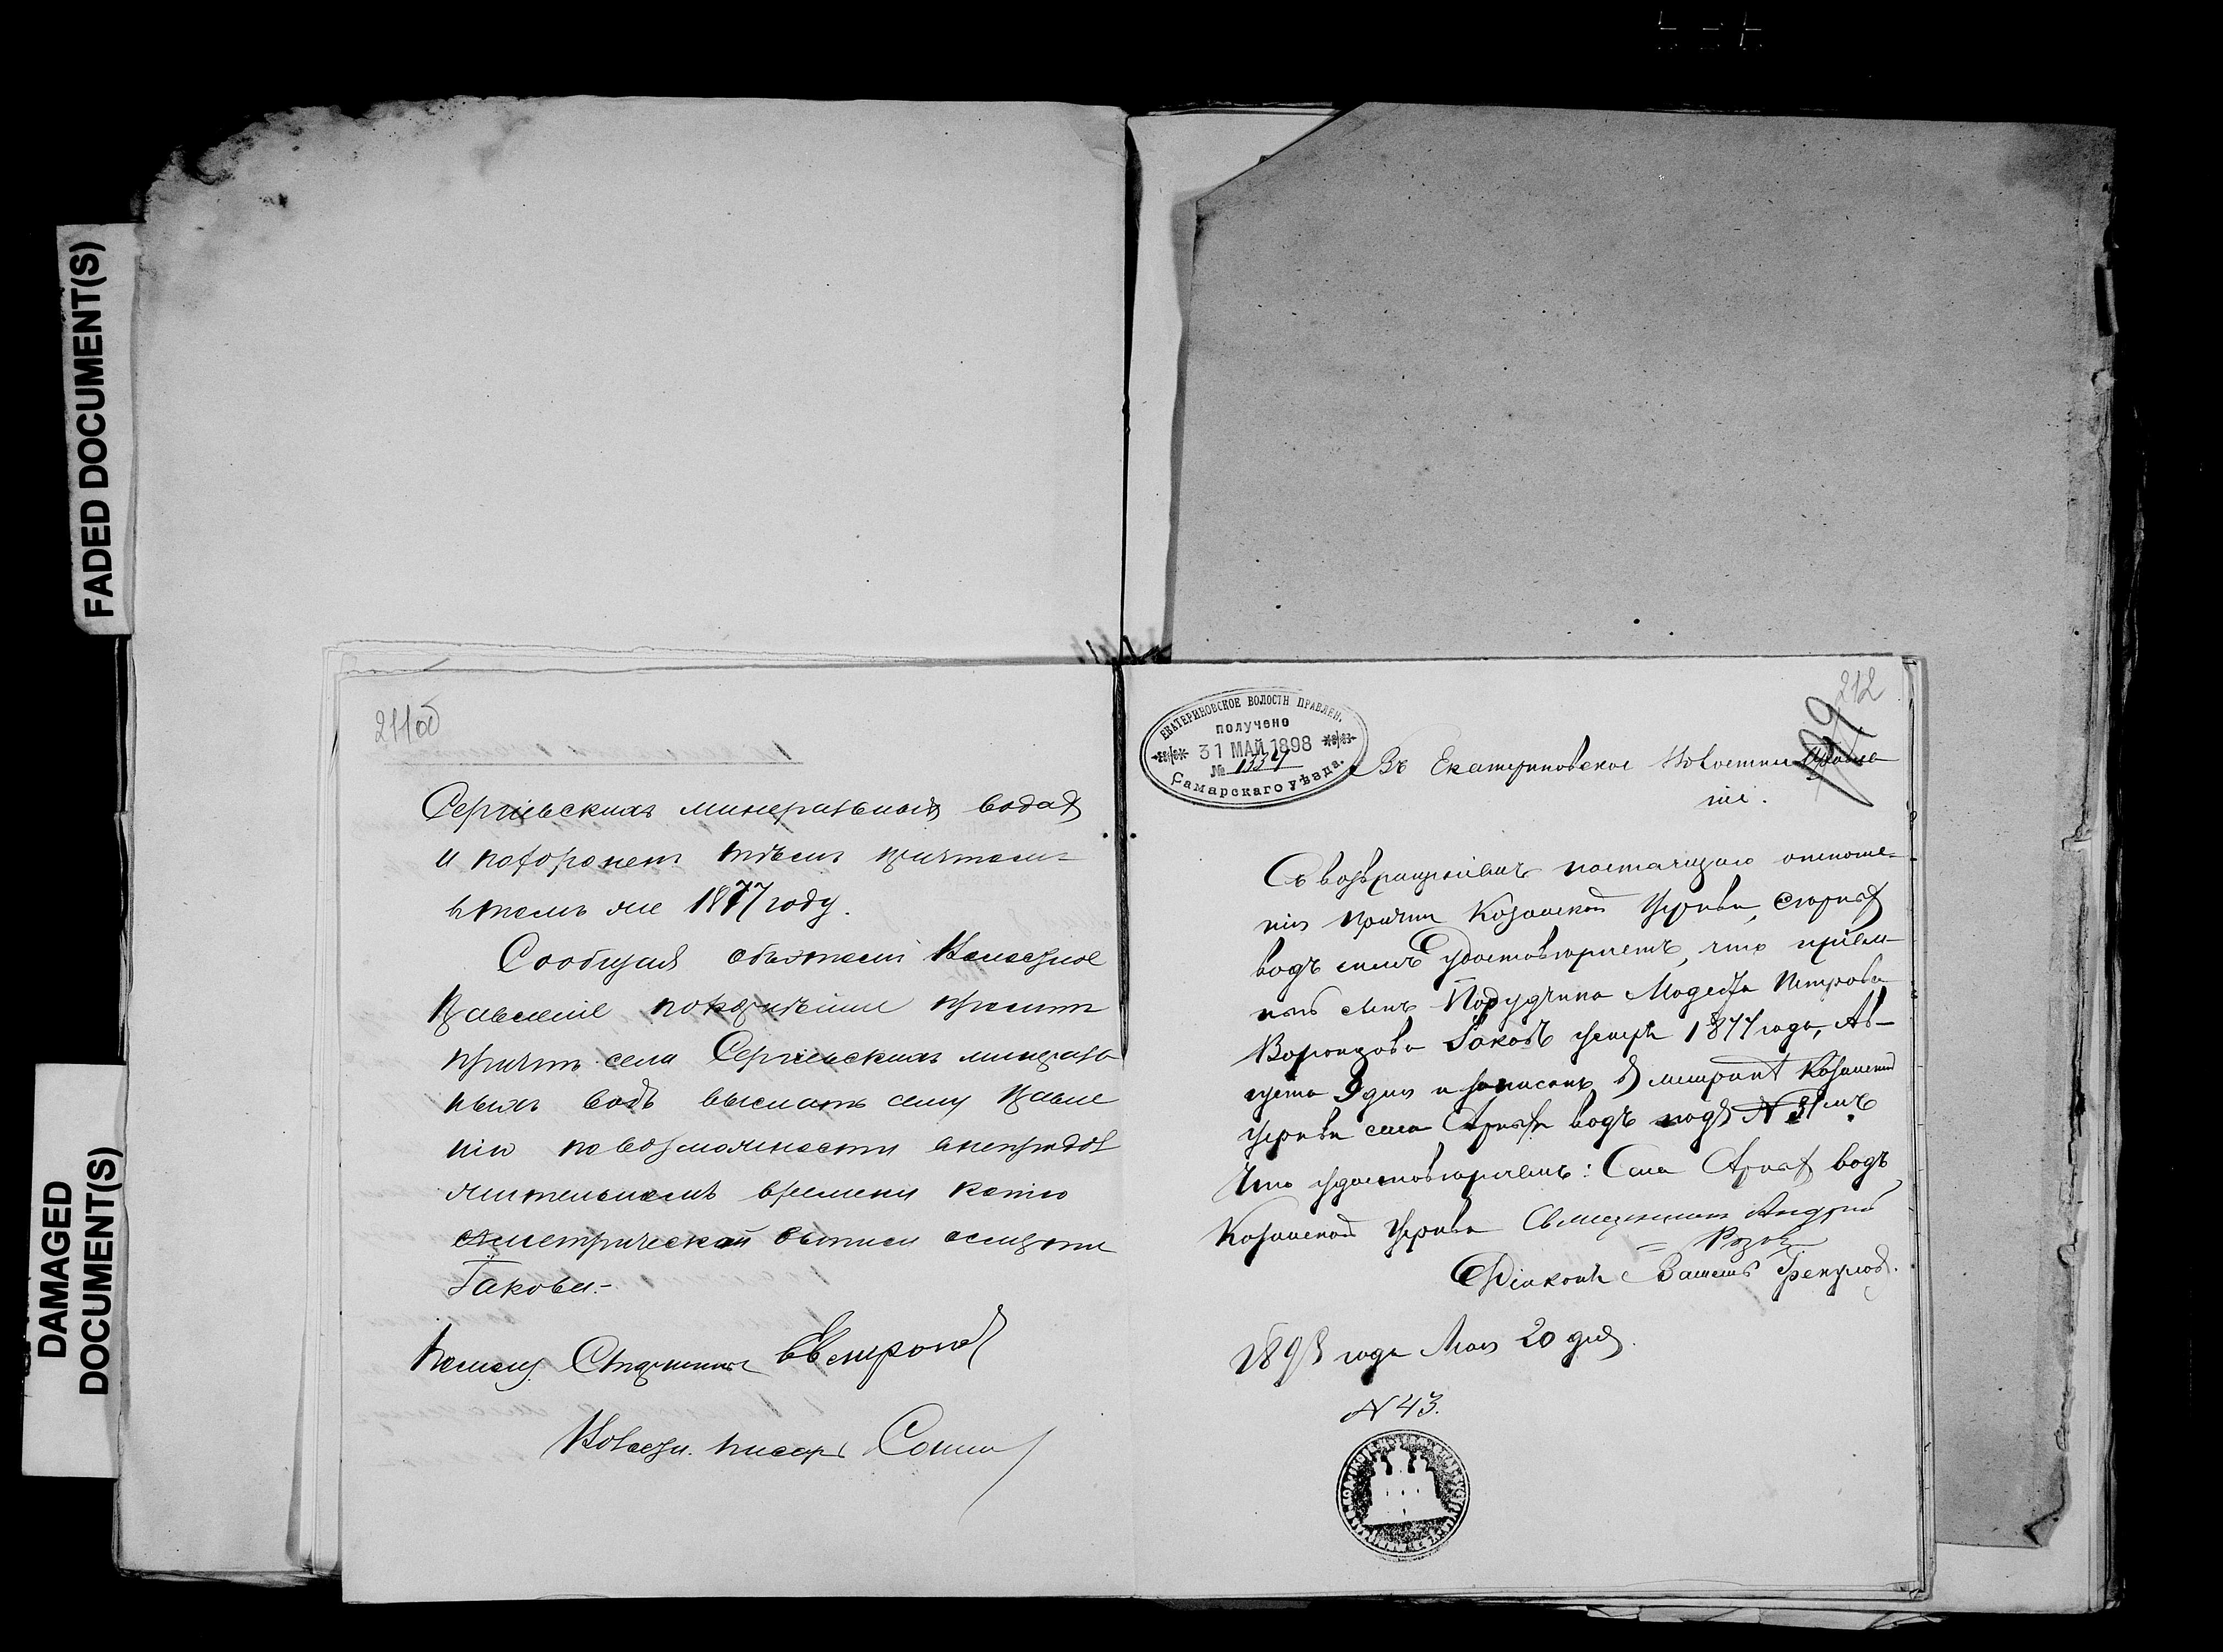 FADED DOCUMENT(S)
DAMAGED
DOCUMENT(S)
211об
Сергіевскихъ минеральныхъ водах
и похоронен тѣмъ причтомъ
въ томъ же 1877 году.
Сообщая объ этомъ Волостное
Правленіе покорнѣйше проситъ
причтъ села Сергіевскихъ минераль
ныхъ водъ выслать сему Правле
нію по возможности в непродол
жительномъ времени копію
метрической выписи о смерти
Іакова.-
Волостн. Старшина
Волостн. писарь
212
99
ЕКАТЕРИНОВСКОЕ ВОЛОСТН ПРАВЛЕН.
получено
31 МАЙ 1898
№ 1334
Самарскаго уѣзда.
Въ Екатериновское Волостное Правле
ніе.
Съ возвращеніемъ настоящаго отноше-
нія причтъ Казанской Церкви, Сѣрныхъ
водъ симъ удостовѣряетъ, что пріем-
ный сынъ Модеста Петрова
Воронцова Іаковъ умеръ 1877 года, Ав-
густа 9 дня и записанъ въ метрикахъ Казанской
Церкви села Сѣрныхъ водъ подъ № 31мъ
Что удостовѣряемъ: Села Сѣрныхъ водъ
Казанской Церкви Священникъ Андрей
Діаконъ
1898 года Мая 20 дня.
N 43.